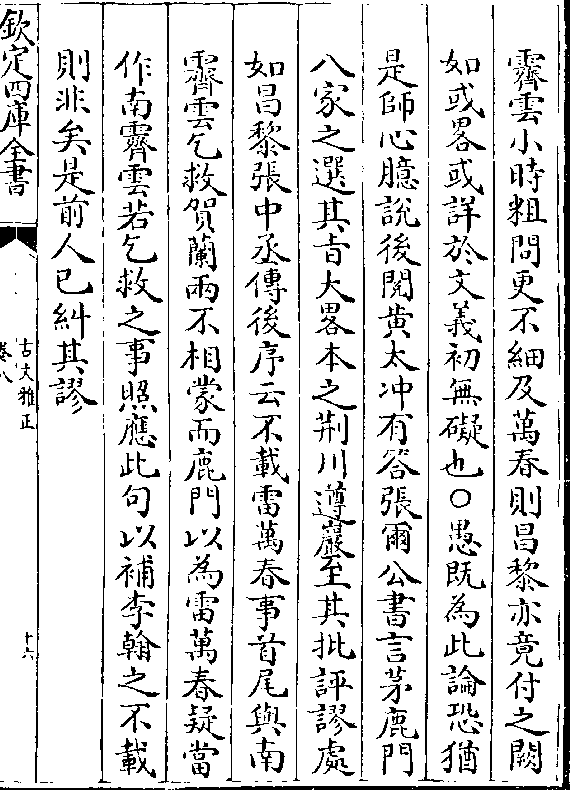 霽雲小時粗問更不細及萬春則昌黎亦竟付之闕
如或畧或詳於文義初無礙也○愚既為此論恐猶
是師心臆說後閱黄太冲有答張爾公書言茅鹿門
八家之選其旨大畧本之荆川遵巖至其批評謬處
如昌黎張中丞傳後序云不載雷萬春事首尾與南
霽雲乞救賀蘭兩不相蒙而鹿門以為雷萬春疑當
作南霽雲若乞救之事照應此句以補李翰之不載
則非矣是前人已糾其謬
欽定四庫全書
古文雅正
卷八
十六